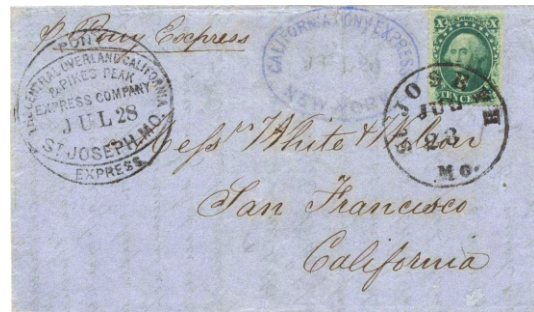 p Pony Express
PONY
THE CENTRAL OVERLAND CALIFORNIA
& PIKES PEAK
EXPRESS COMPANY
JUL 28
ST JOSEPH, MO.
EXPRESS
CALIFORNIA PONY EXPRESS
JUL 20
NEW YORK
X X
TEN CENTS
ST JOSEPH
JUL
28
Mo.
Messrs White &
San Francisco
California